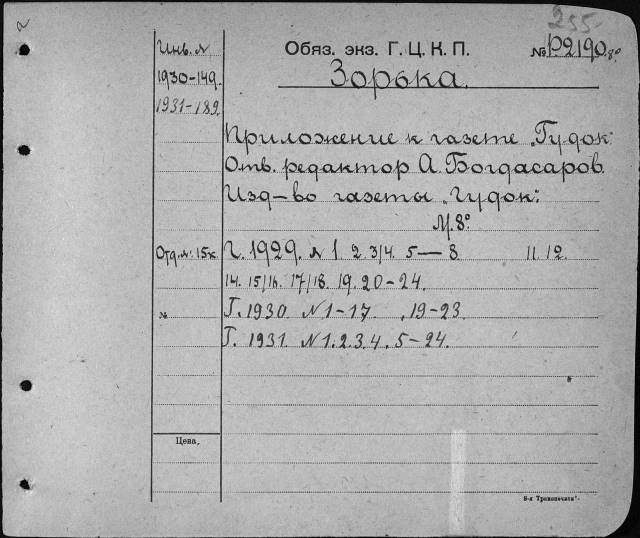 255
Инв. №
Обяз. экз. Г. Ц. К. П.
№ Р2190.8°
1930-149.
Зорька.
1931-189.
Приложение к газете „Гудок"
Отв. редактор А. Богдасаров.
Изд-во газеты „Гудок".
М. 8°.
Отд. №: 15 к.
Г. 1929. № 1. 2. 3/4. 5—8 11. 12.
14. 15/16. 17/18. 19. 20-24.
№
Г. 1930 № 1-17 , 19-23.
Г. 1931. № 1. 2. 3. 4. 5-24.
Цена.
8-я „Транспечати".